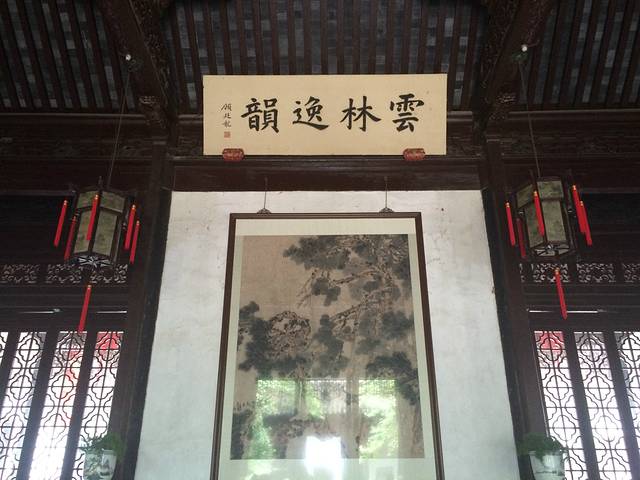 雲林逸韻
顧廷龍